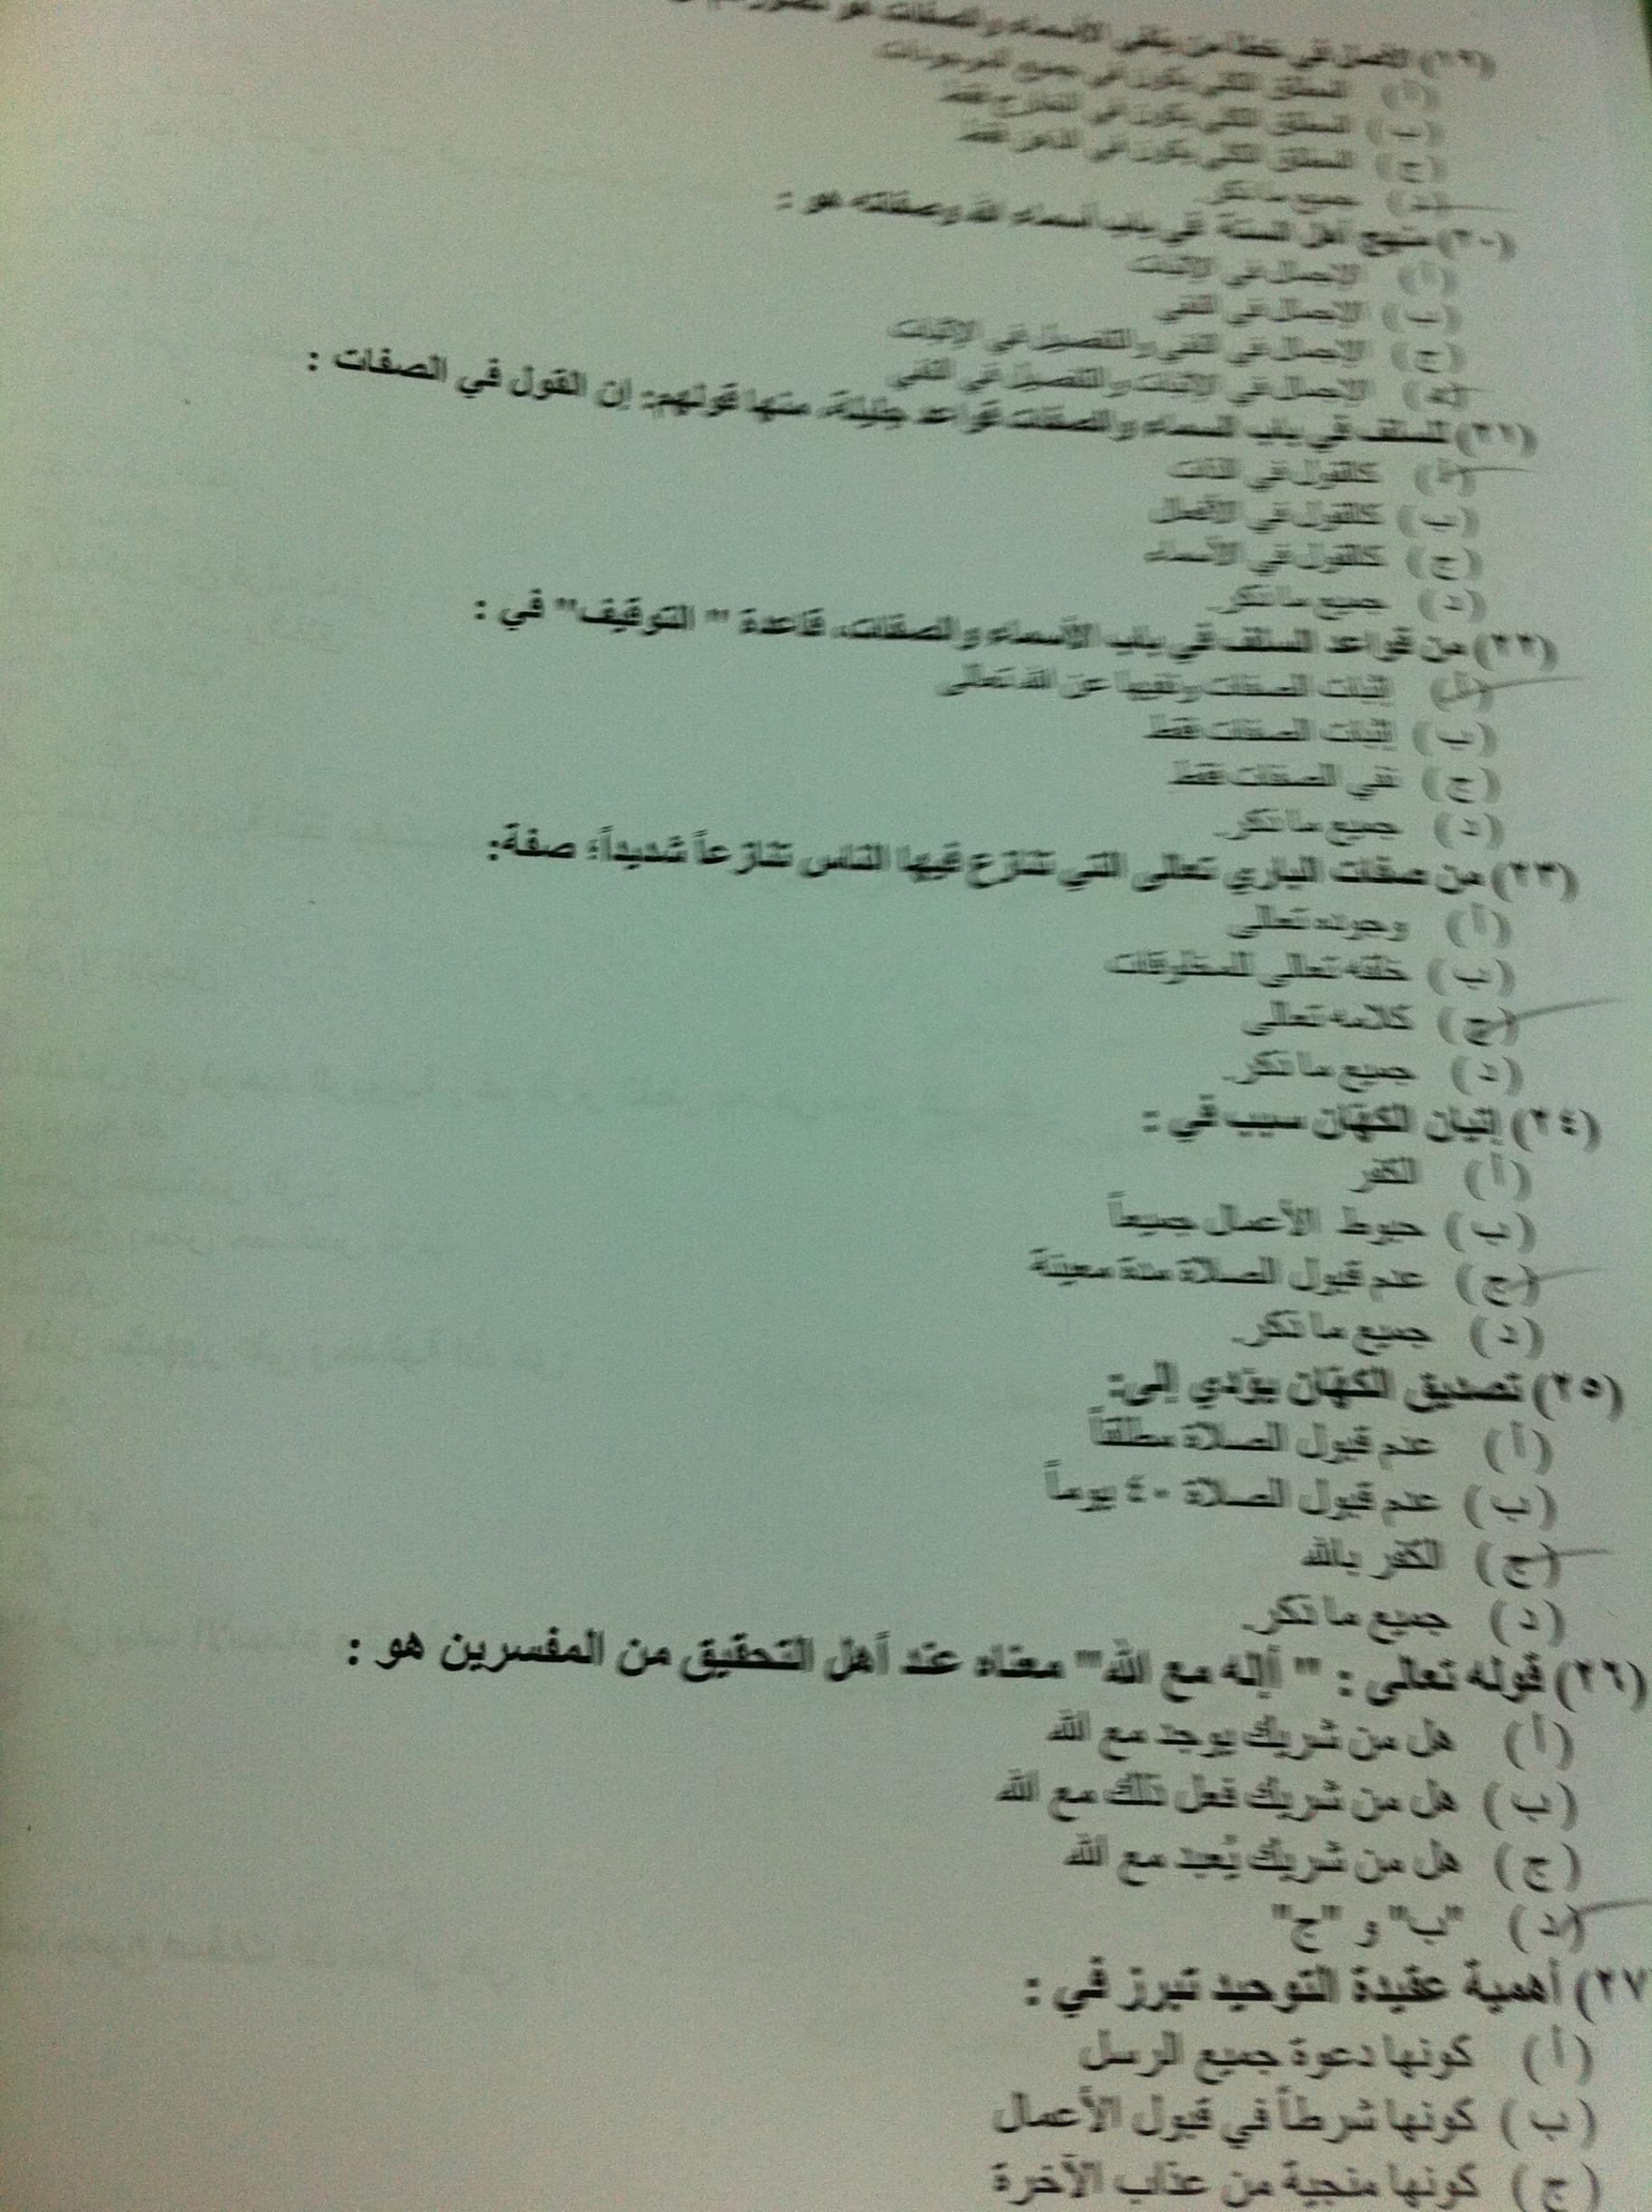 (١٩) الأصل في خطأ من ينفي الأسماء والصفات هو
(أ) المطلق الكلي يكون في جميع الموجودات
(ب) المطلق الكلي يكون في الخارج فقط
(ج) المطلق الكلي يكون في الذهن فقط
(د) جميع ما ذكر.
(٢٠) منهج أهل السنة في باب أسماء الله وصفاته هو :
(أ) الإجمال في الإثبات
(ب) الإجمال في النفي
(ج) الإجمال في النفي والتفصيل في الإثبات
(د) الإجمال في الإثبات والتفصيل في النفي
(٢١) للسلف في باب السماء والصفات قواعد جليلة، منها قولهم: إن القول في الصفات :
(أ) كالقول في الذات
(ب) كالقول في الأفعال
(ج) كالقول في الأسماء
(د) جميع ما ذكر.
(٢٢) من قواعد السلف في باب الأسماء والصفات، قاعدة " التوقيف" في :
(أ) إثبات الصفات ونفيها عن الله تعالى
(ب) إثبات الصفات فقط
(ج) نفي الصفات فقط
(د) جميع ما ذكر.
(٢٣) من صفات الباري تعالى التي تنازع فيها الناس تنازعاً شديداً؛ صفة:
(أ) وجوده تعالى
(ب) خلقه تعالى للمخلوقات
(ج) كلامه تعالى
(د) جميع ما ذكر.
(٢٤) إتيان الكهّان سبب في :
(أ) الكفر
(ب) حبوط الأعمال جميعاً
(ج) عدم قبول الصلاة مدة معينة
(د) جميع ما ذكر.
(٢٥) تصديق الكهّان يؤدي إلى:
(أ) عدم قبول الصلاة مطلقاً
(ب) عدم قبول الصلاة ٤٠ يوماً
(ج) الكفر بالله
(د) جميع ما ذكر.
(٢٦) قوله تعالى : " أإله مع الله" معناه عند أهل التحقيق من المفسرين هو :
(أ) هل من شريك يوجد مع الله
(ب) هل من شريك فعل ذلك مع الله
(ج) هل من شريك يُعبد مع الله
(د) "ب" و "ج"
(٢٧) أهمية عقيدة التوحيد تبرز في :
(أ) كونها دعوة جميع الرسل
(ب) كونها شرطاً في قبول الأعمال
(ج) كونها منجية من عذاب الآخرة